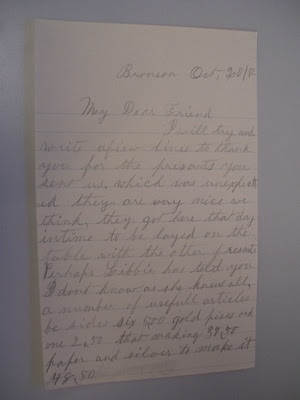 Bronson Oct, 20th/8
My Dear Friend
I will try and
write afiew lines to thank
you for the presants you
sent us. which was unexpect
ed theys are vary nice we
think, they got here that day
intime to be layed on the
table with the other presents
Perhaps Libbie has told you
I dont know as she knew all,
a number of usefull articles
be sides six 5.00 gold pises and
one 2.50 that making 37.50
paper and silver to make it
48.50